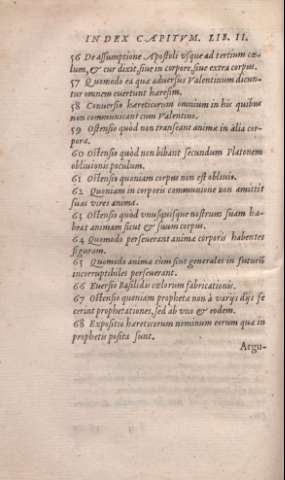 INDEX CAPITVM. LIB. II.
56 De assumptione Apostoli vsque ad tertium cœ-
lum, & cur dixit, siue in corpore, siue extra corpus.
57 Quomodo ea quæ aduersus Valentinum dicun-
tur omnem euertunt hæresim.
58 Conuersio hæreticorum omnium in his quibus
non communicant cum Valentino.
59 Ostensio quòd non transeant animæ in alia cor-
pora.
60 Ostensio quòd non bibant secundum Platonem
obliuionis poculum.
61 Ostensio quoniam corpus non est obliuio.
62 Quoniam in corporis communione non amittit
suas vires anima.
63 Ostensio quòd vnusquisque nostrum suam ha-
beat animam sicut & suum corpus.
64 Quomodo perseuerant animæ corporis habentes
figuram.
65 Quomodo animæ cùm sint generales in futuris
incorruptibiles perseuerant.
66 Euersio Basilidis cœlorum fabricationis.
67 Ostensio quoniam prophetæ non à varijs dijs fe
cerint prophetationes, sed ab vno & eodem.
68 Expositio hæreticorum nominum eorum quæ in
prophetis posita sunt.
Argu-